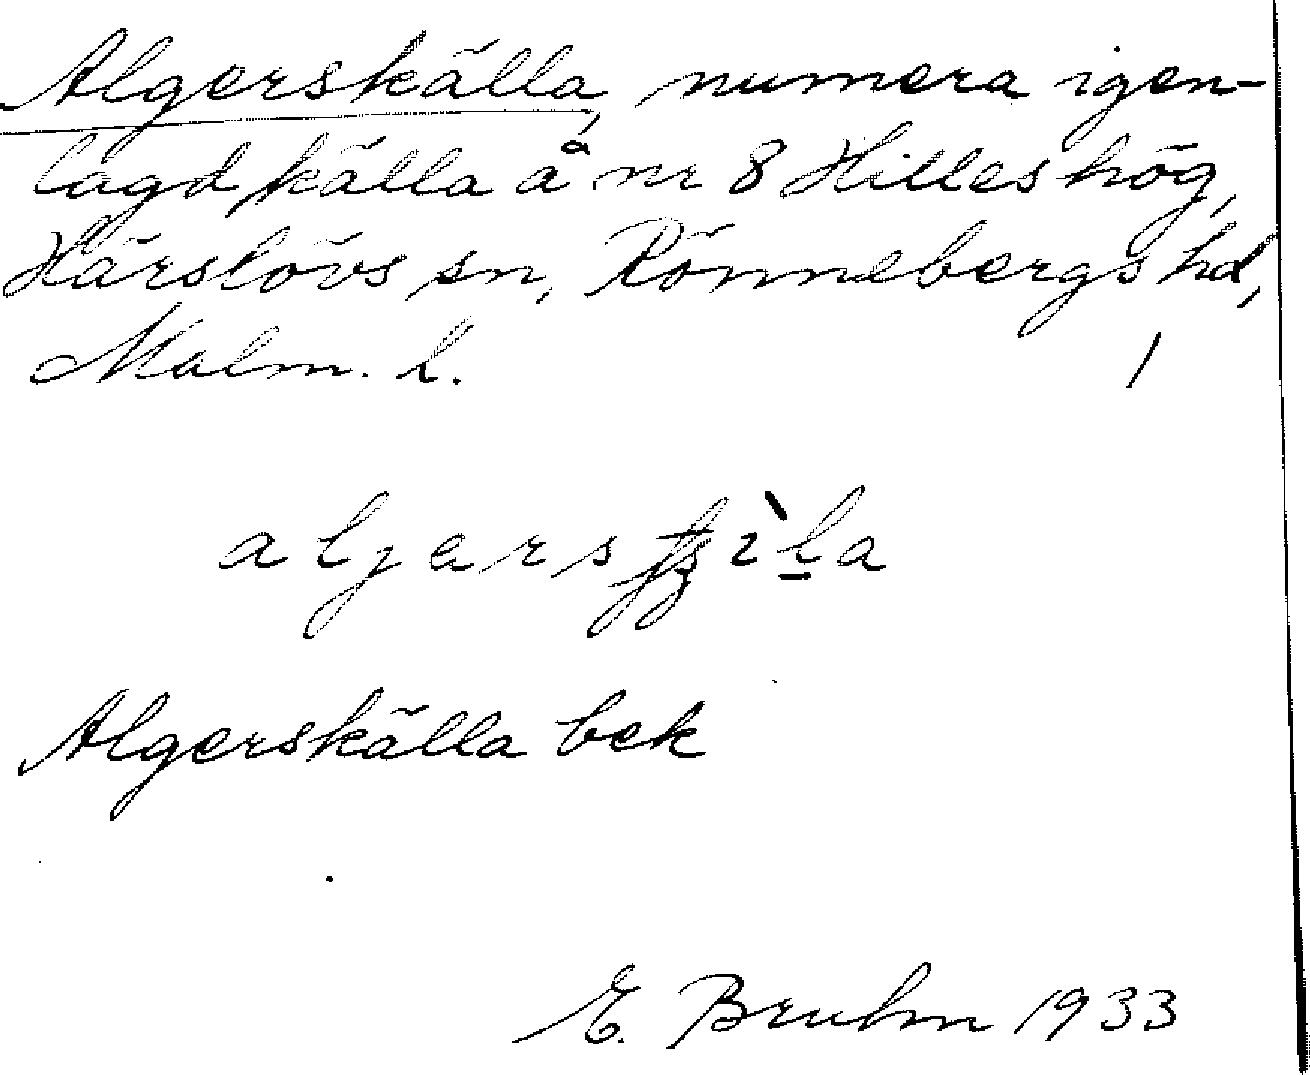 Algerskälla, numera igen-
lagd källa å nr 8 Hilleshög,
Härslövs sn, Rönnebergs hd,
Malm. l. /
Algerskälla bek
E. Bruhn 1933